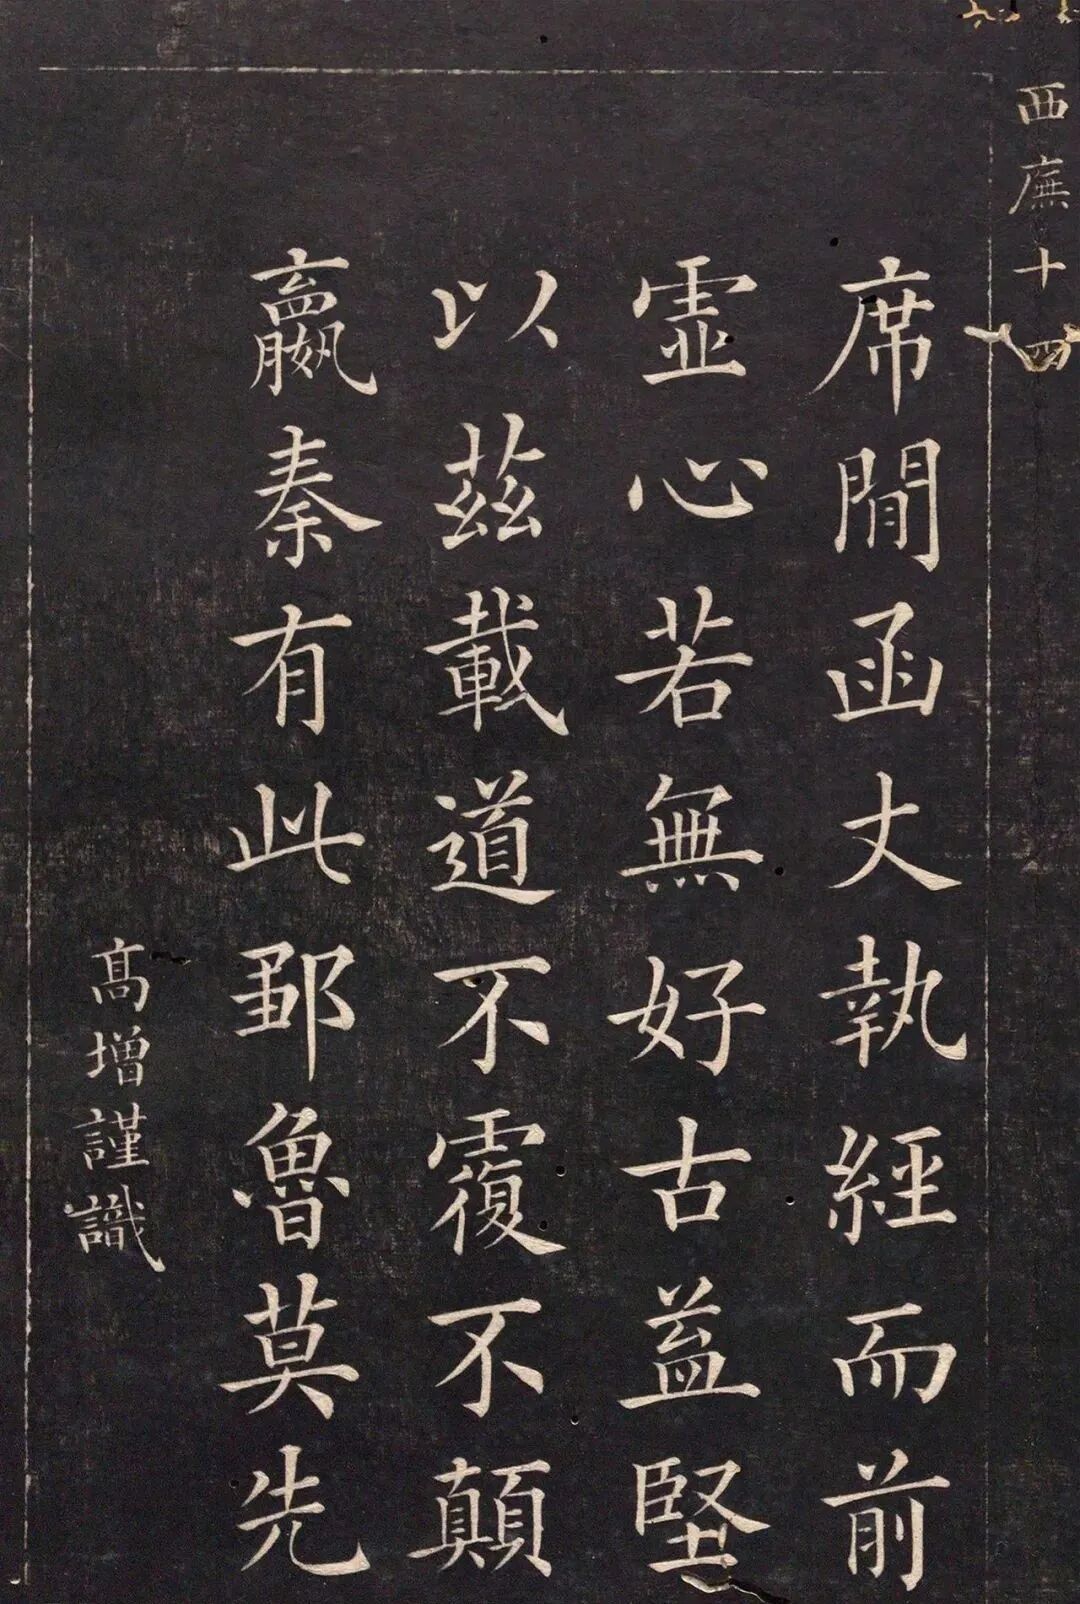 西廡十四
席間函丈執經而前
虛心若無好古益堅
以茲載道不覆不顛
嬴秦有此鄒魯莫先
高增謹識